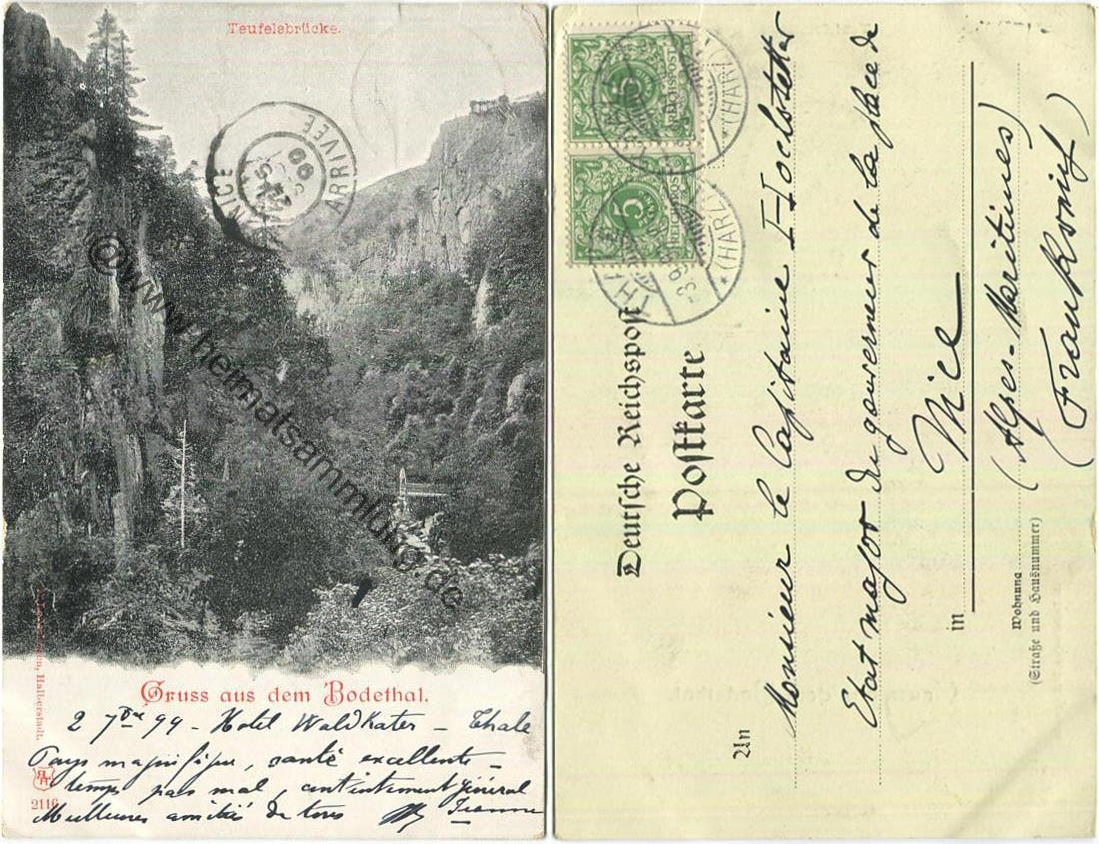 Teufelsbrücke.
NICE
ARRIVÉE
@www.heimatsammlung.de
Halberstadt.
2116
Gruss aus dem Bodethal.
2 7bre 99 - Hotel Waldkater - Thale
Pays magnifique, santé excellente -
temps pas mal, contentement général
Meilleures amitiés de tous Jeanne
REICHSPOST
5
5
(HARZ)
(HARZ)
Deutsche Reichspost
Postkarte
An Monsieur le Capitaine Hochstetter
Etat major du gouverneur de la place de
in Nice
Wohnung (Alpes-Maritimes)
(Straße und Hausnummer)
(Frankreich)